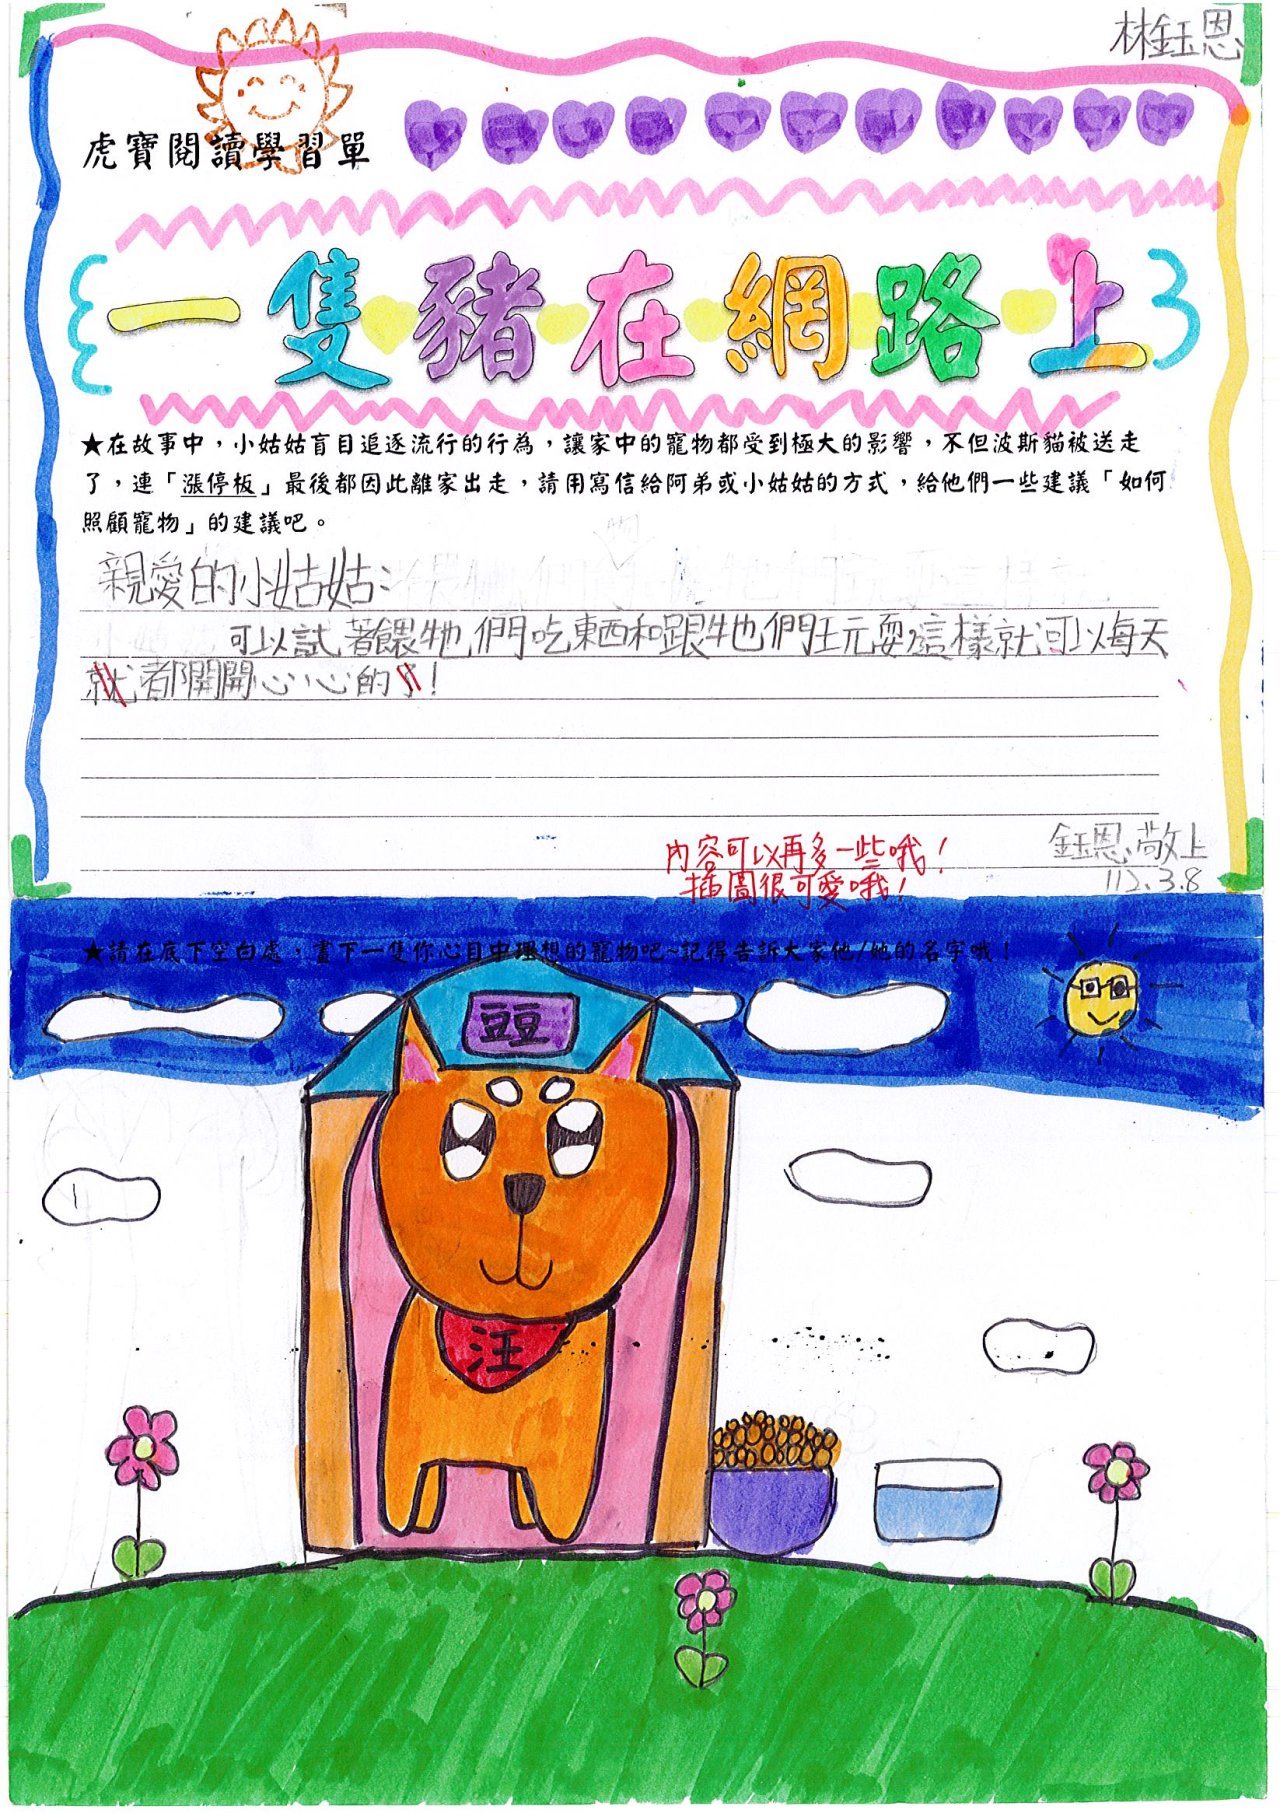 林鈺恩
虎寶閱讀學習單
一隻豬在網路上
★在故事中，小姑姑盲目追逐流行的行為，讓家中的寵物都受到極大的影響，不但波斯貓被送走
了，連「漲停板」最後都因此離家出走，請用寫信給阿弟或小姑姑的方式，給他們一些建議「如何
照顧寵物」的建議吧。
親愛的小姑姑：
可以試著餵牠們吃東西和跟牠們玩耍這樣就可以每天
就都開開心心的了！
鈺恩敬上
112.3.8
內容可以再多一些哦！
插圖很可愛哦！
★請在底下空白處，畫下一隻你心目中理想的寵物吧~記得告訴大家他/她的名字哦！
豆豆
汪